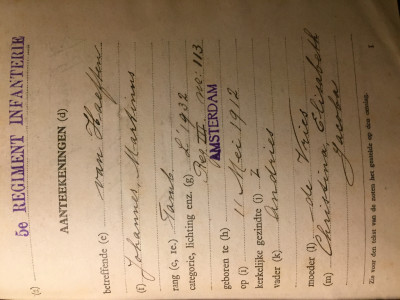 (c)
5e REGIMENT INFANTERIE
AANTEEKENINGEN (d)
betreffende (e) van Haeften
(f) Johannes, Martinus
rang (c, 1e.) Tamb.
categorie, lichting enz. (g) L. 1932
Per. III no: 113
geboren te (h) AMSTERDAM
op (i) 11 Mei 1912
kerkelijke gezindte (j)
vader (k) Andries
moeder (l) de Vries
(m) Christina, Elisabeth
Jacoba
Zie voor den tekst van de noten het gestelde op den omslag.
1